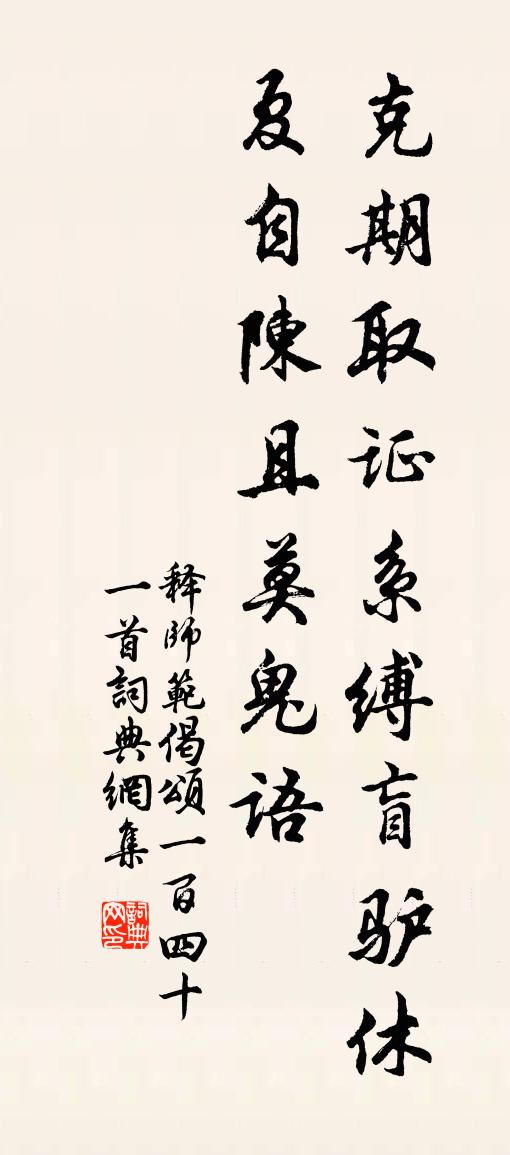 克期取证系缚盲驴休
夏自陳且莫鬼语
释師範偈頌一百四十
一首詞典網集
詞典网印